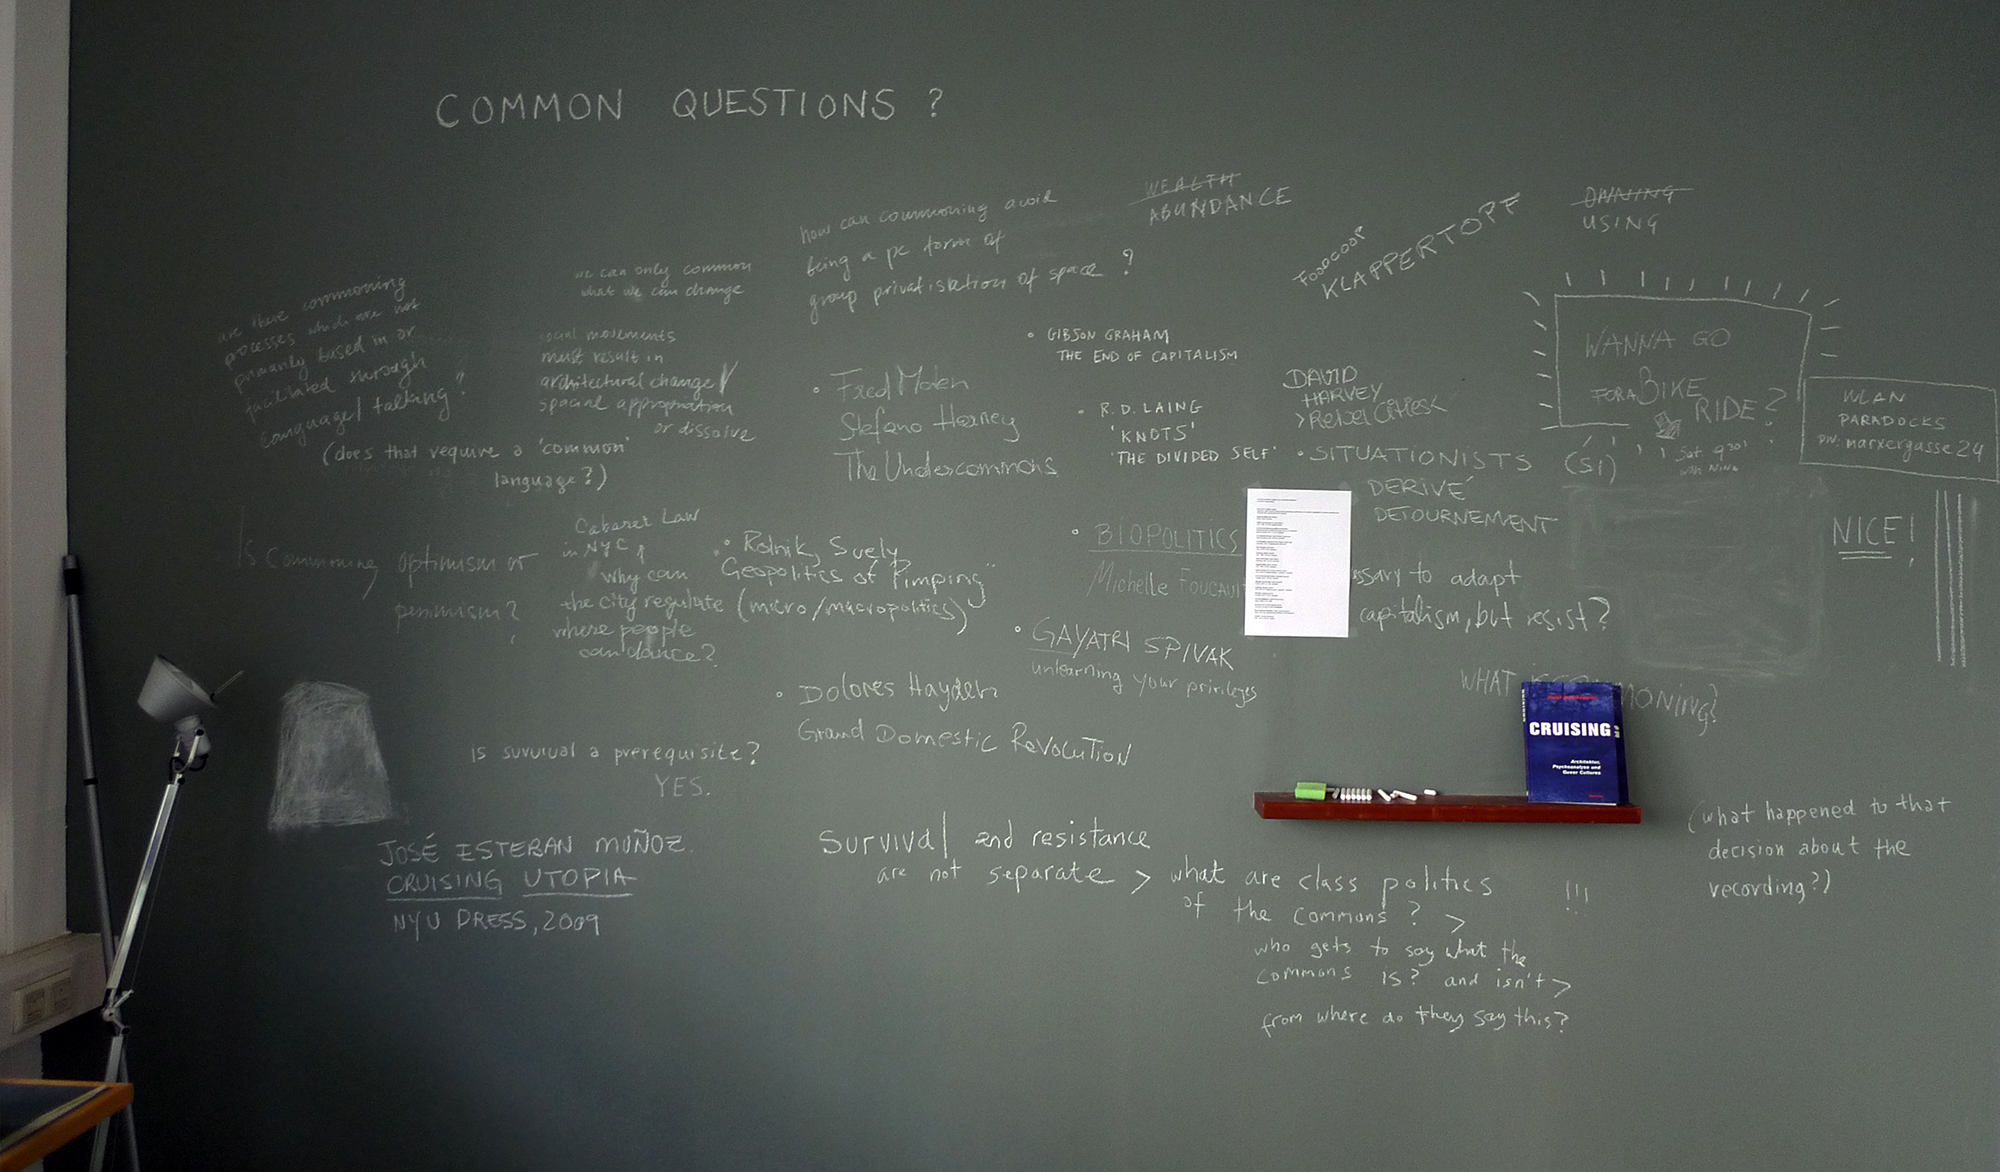 COMMON QUESTIONS ?
are there commoning
processes which are not
primarily based in or
facilitated through
language/talking?
(does that require a 'common'
language?)
we can only common
what we can change
social movements
must result in
architectural change/
spacial appropriation
or dissolve
how can commoning avoid
being a pc form of
group privatistation of space ?
WEALTH
ABUNDANCE
FOODCOOP
KLAPPERTOPF
OWNING
USING
WANNA GO
FOR A BIKE
RIDE?
Sat 9 30!
with NINA
WLAN
PARADOCKS
PW: marxergasse 24
NICE!
• GIBSON GRAHAM
THE END OF CAPITALISM
• Fred Moten
Stefano Harney
The Undercommons
• R.D. LAING
'KNOTS'
'THE DIVIDED SELF'
DAVID
HARVEY
>Rebel Cities<
• SITUATIONISTS (SI)
DERIVÉ
DETOURNEMENT
Is commoning optimism or
pessimism?
Cabaret Law
in NYC
why can
the city regulate
where people
can dance?
• Rolnik, Suely
"Geopolitics of Pimping"
(micro/macropolitics)
• BIOPOLITICS
Michelle Foucaul
ssary to adapt
capitalism, but resist?
• GAYATRI SPIVAK
unlearning your privileges
WHAT MONING?
• Dolores Hayden
Grand Domestic Revolution
Is survival a prerequisite?
YES.
CRUISING:
Architektur,
Psychoanalyse und
Queer Cultures
JOSÉ ESTEBAN MUÑOZ.
CRUISING UTOPIA
NYU PRESS, 2009
Survival and resistance
are not separate > what are class politics
of the commons ? >
who gets to say what the
commons is? and isn't >
from where do they say this?
!!!
(what happened to that
decision about the
recording?)